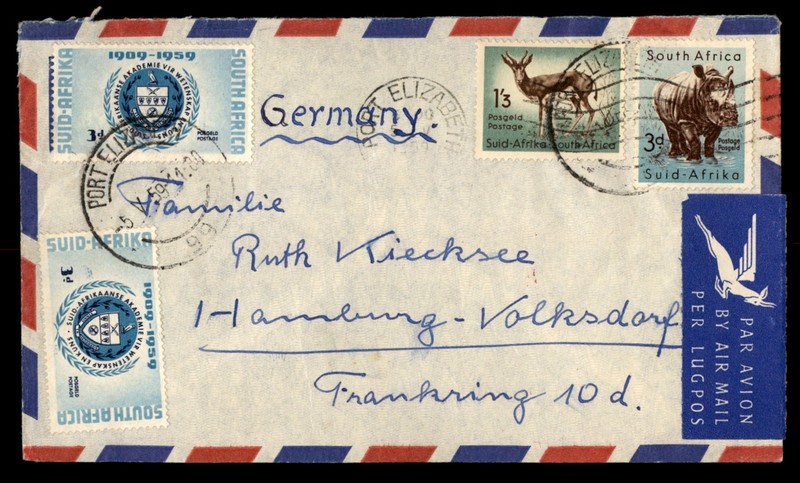 SUID-AFRIKA
1909-1959
SOUTH AFRICA
SUID-AFRIKAANSE AKADEMIE VIR WETENSKAP EN KUNS
3d
POSGELD
POSTAGE
Germany.
PORT ELIZABETH
1'3
Posgeld
Postage
Suid-Afrika South Africa
South Africa
3d
Postage
Posgeld
Suid-Afrika
PORT ELIZABETH
-5 X 59-14 00
99
Familie
Ruth Kiecksee
Hamburg-Volksdorf
Frankring 10 d.
SUID-AFRIKA
3d
1909-1959
SUID-AFRIKAANSE AKADEMIE VIR WETENSKAP EN KUNS
POSGELD
POSTAGE
SOUTH AFRICA
PAR AVION
BY AIR MAIL
PER LUGPOS